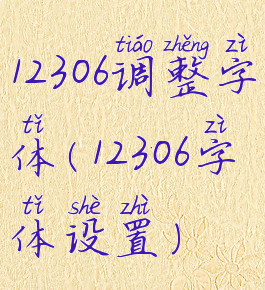 tiáo zhěng zì
12306调整字
tǐ zì
体(12306字
tǐ shè zhì
体设置)